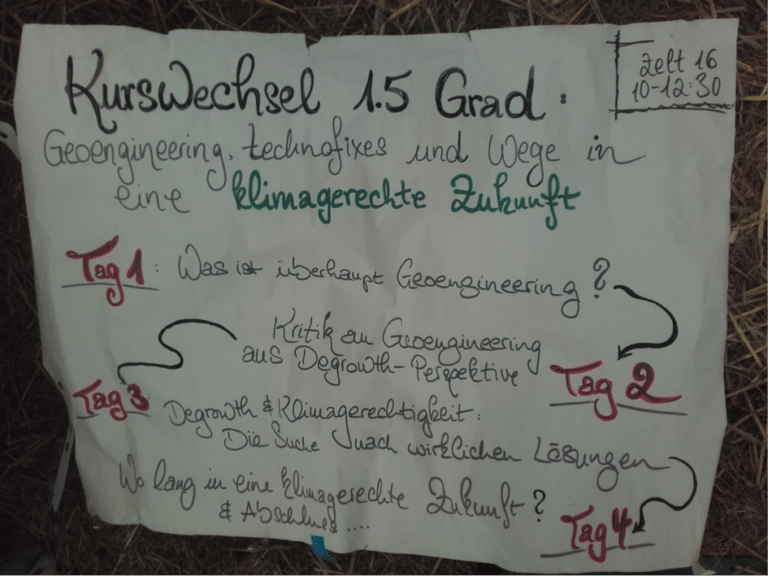 Kurswechsel 1.5 Grad:
Zelt 16
10-12:30
Geoengineering, technofixes und Wege in
eine klimagerechte Zukunft
Tag 1: Was ist überhaupt Geoengineering?
Kritik an Geoengineering
aus Degrowth-Perspektive
Tag 2
Tag 3: Degrowth & Klimagerechtigkeit:
Die Suche nach wirklichen Lösungen
Wo lang in eine klimagerechte Zukunft?
& Abschluss ....
Tag 4